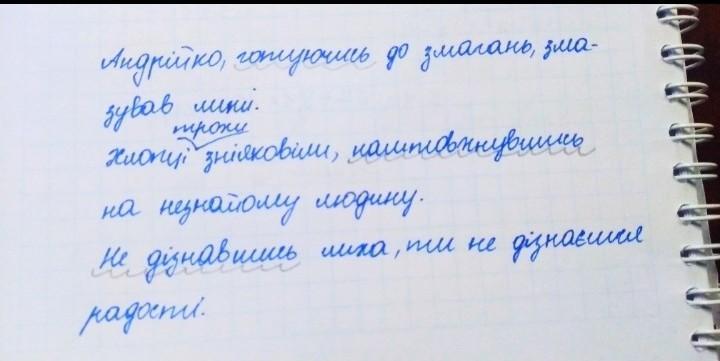 Андрійко, готуючись до змагань, зма-
зував лижі.
трохи
Хлопці зніяковіли, наштовхнувшись
на незнайому людину.
Не дізнавшись лиха, ти не дізнаєшся
радості.